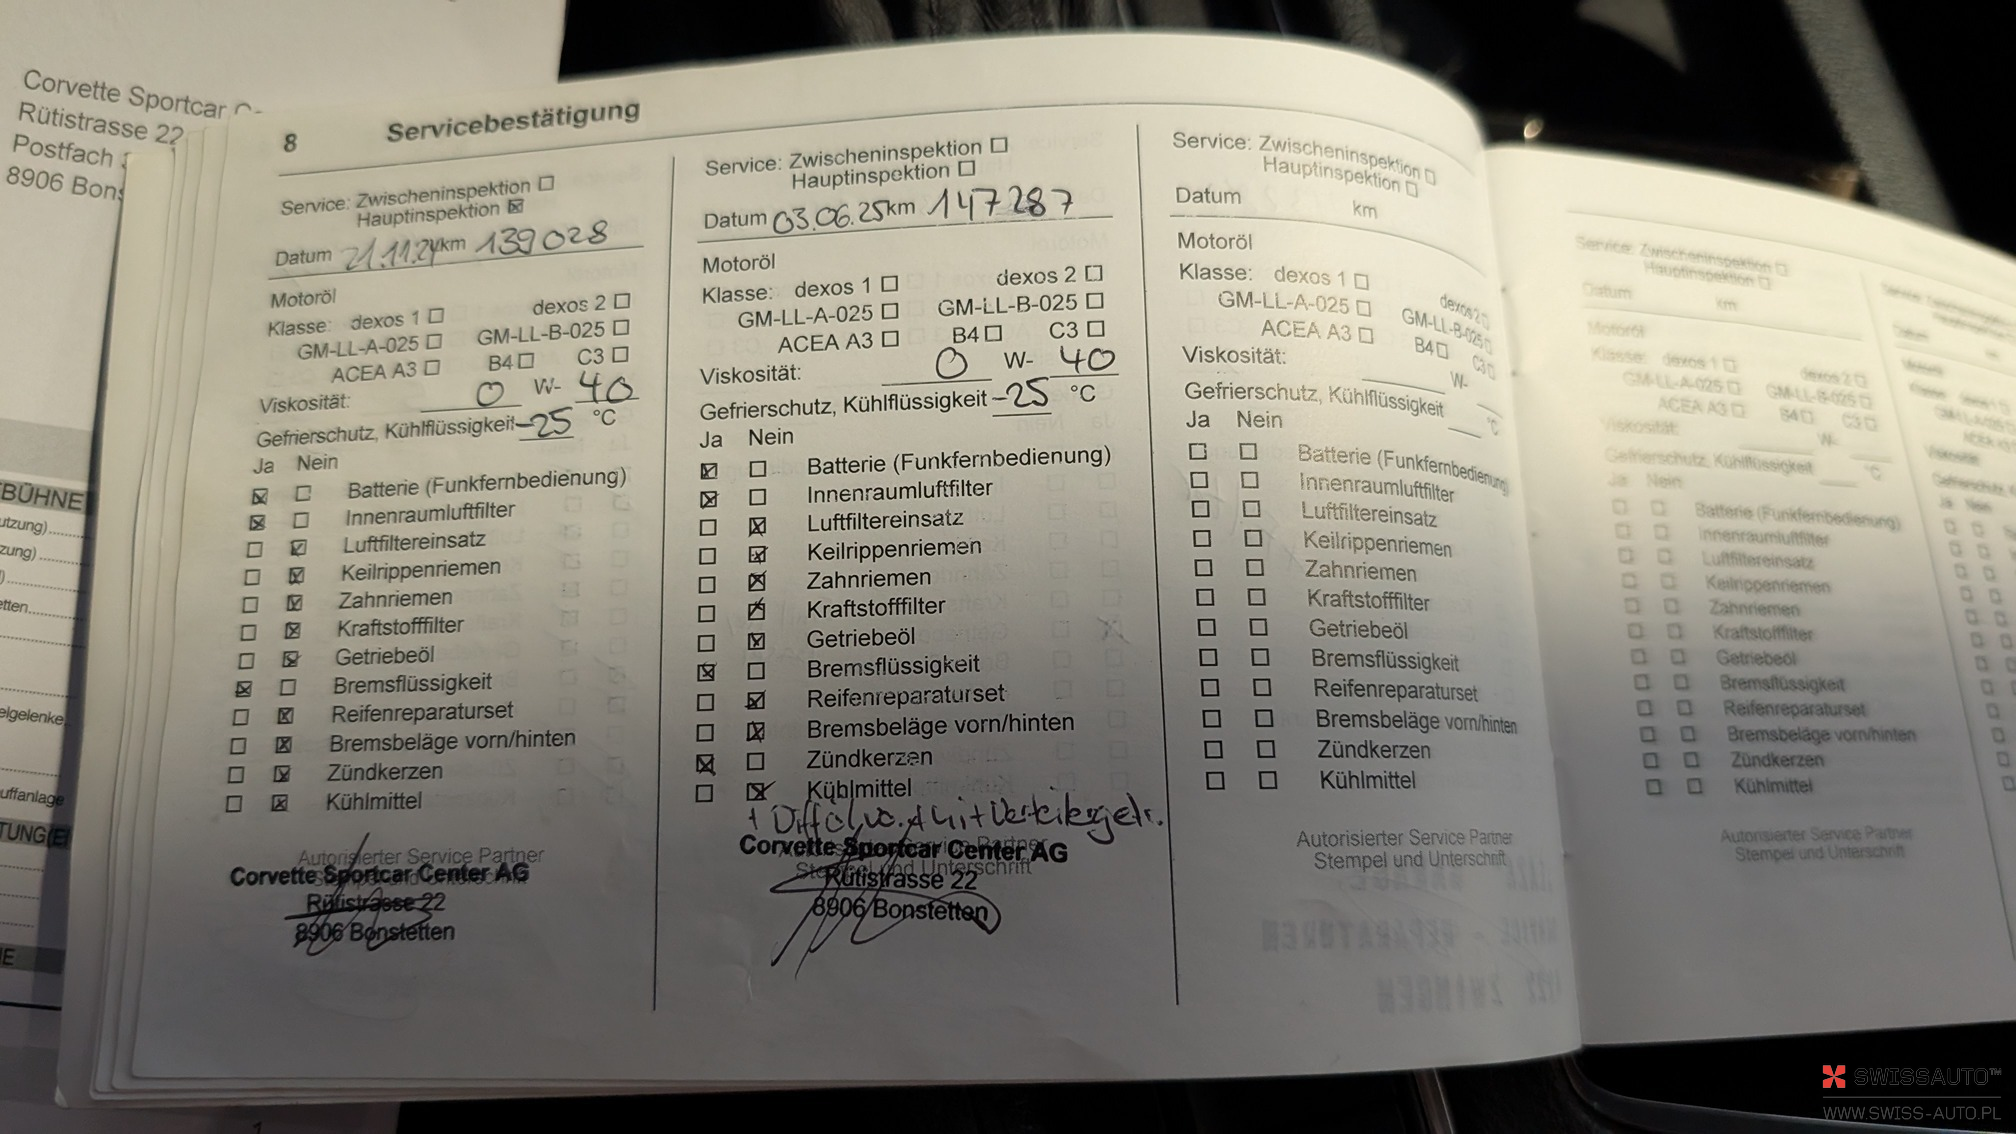 Corvette Sportcar
Rütistrasse 22
Postfach
8906 Bons
8 Servicebestätigung
Service: Zwischeninspektion ☐
Hauptinspektion ☒
Datum 21.11.24 km 139028
Motoröl
Klasse: dexos 1 ☐ dexos 2 ☐
GM-LL-A-025 ☐ GM-LL-B-025 ☐
ACEA A3 ☐ B4 ☐ C3 ☐
Viskosität: 0 W- 40
Gefrierschutz, Kühlflüssigkeit -25 °C
Ja Nein
☒ ☐ Batterie (Funkfernbedienung)
☒ ☐ Innenraumluftfilter
☐ ☒ Luftfiltereinsatz
☐ ☒ Keilrippenriemen
☐ ☒ Zahnriemen
☐ ☒ Kraftstofffilter
☐ ☒ Getriebeöl
☒ ☐ Bremsflüssigkeit
☐ ☒ Reifenreparaturset
☐ ☒ Bremsbeläge vorn/hinten
☐ ☒ Zündkerzen
☐ ☒ Kühlmittel
Autorisierter Service Partner
Corvette Sportcar Center AG
Rütistrasse 22
8906 Bonstetten
Service: Zwischeninspektion ☐
Hauptinspektion ☐
Datum 03.06.25 km 147287
Motoröl
Klasse: dexos 1 ☐ dexos 2 ☐
GM-LL-A-025 ☐ GM-LL-B-025 ☐
ACEA A3 ☐ B4 ☐ C3 ☐
Viskosität: 0 W- 40
Gefrierschutz, Kühlflüssigkeit -25 °C
Ja Nein
☒ ☐ Batterie (Funkfernbedienung)
☒ ☐ Innenraumluftfilter
☐ ☒ Luftfiltereinsatz
☐ ☒ Keilrippenriemen
☐ ☒ Zahnriemen
☐ ☒ Kraftstofffilter
☐ ☒ Getriebeöl
☒ ☐ Bremsflüssigkeit
☐ ☒ Reifenreparaturset
☐ ☒ Bremsbeläge vorn/hinten
☒ ☐ Zündkerzen
☐ ☒ Kühlmittel
Corvette Sportcar Center AG
Stempel und Unterschrift
Rütistrasse 22
8906 Bonstetten
Service: Zwischeninspektion ☐
Hauptinspektion ☐
Datum km
Motoröl
Klasse: dexos 1 ☐ dexos 2 ☐
GM-LL-A-025 ☐ GM-LL-B-025 ☐
ACEA A3 ☐ B4 ☐ C3 ☐
Viskosität: W-
Gefrierschutz, Kühlflüssigkeit °C
Ja Nein
☐ ☐ Batterie (Funkfernbedienung)
☐ ☐ Innenraumluftfilter
☐ ☐ Luftfiltereinsatz
☐ ☐ Keilrippenriemen
☐ ☐ Zahnriemen
☐ ☐ Kraftstofffilter
☐ ☐ Getriebeöl
☐ ☐ Bremsflüssigkeit
☐ ☐ Reifenreparaturset
☐ ☐ Bremsbeläge vorn/hinten
☐ ☐ Zündkerzen
☐ ☐ Kühlmittel
Autorisierter Service Partner
Stempel und Unterschrift
Service: Zwischeninspektion ☐
Hauptinspektion ☐
Datum km
Motoröl
Klasse: dexos 1 ☐ dexos 2 ☐
GM-LL-A-025 ☐ GM-LL-B-025 ☐
ACEA A3 ☐ B4 ☐ C3 ☐
Viskosität: W-
Gefrierschutz, Kühlflüssigkeit °C
Ja Nein
☐ ☐ Batterie (Funkfernbedienung)
☐ ☐ Innenraumluftfilter
☐ ☐ Luftfiltereinsatz
☐ ☐ Keilrippenriemen
☐ ☐ Zahnriemen
☐ ☐ Kraftstofffilter
☐ ☐ Getriebeöl
☐ ☐ Bremsflüssigkeit
☐ ☐ Reifenreparaturset
☐ ☐ Bremsbeläge vorn/hinten
☐ ☐ Zündkerzen
☐ ☐ Kühlmittel
Autorisierter Service Partner
Stempel und Unterschrift
SWISSAUTO™
WWW.SWISS-AUTO.PL